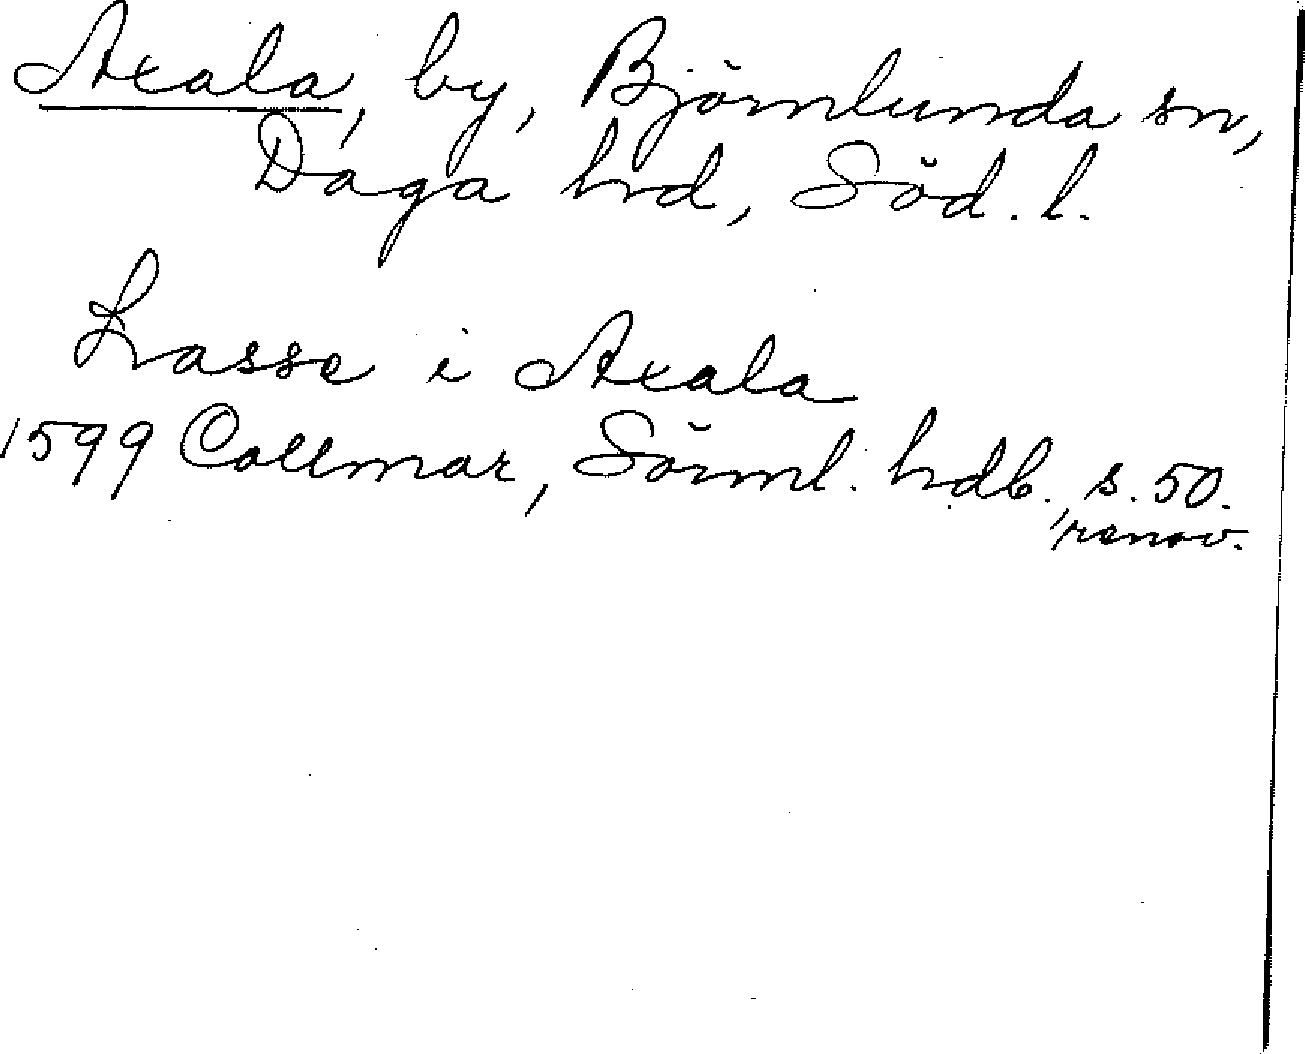 Axala, by, Björnlunda sn,
Daga hrd, Söd. l.
Lasse i Axala
1599 Collmar, Sörml. hdb., s. 50.
renov.